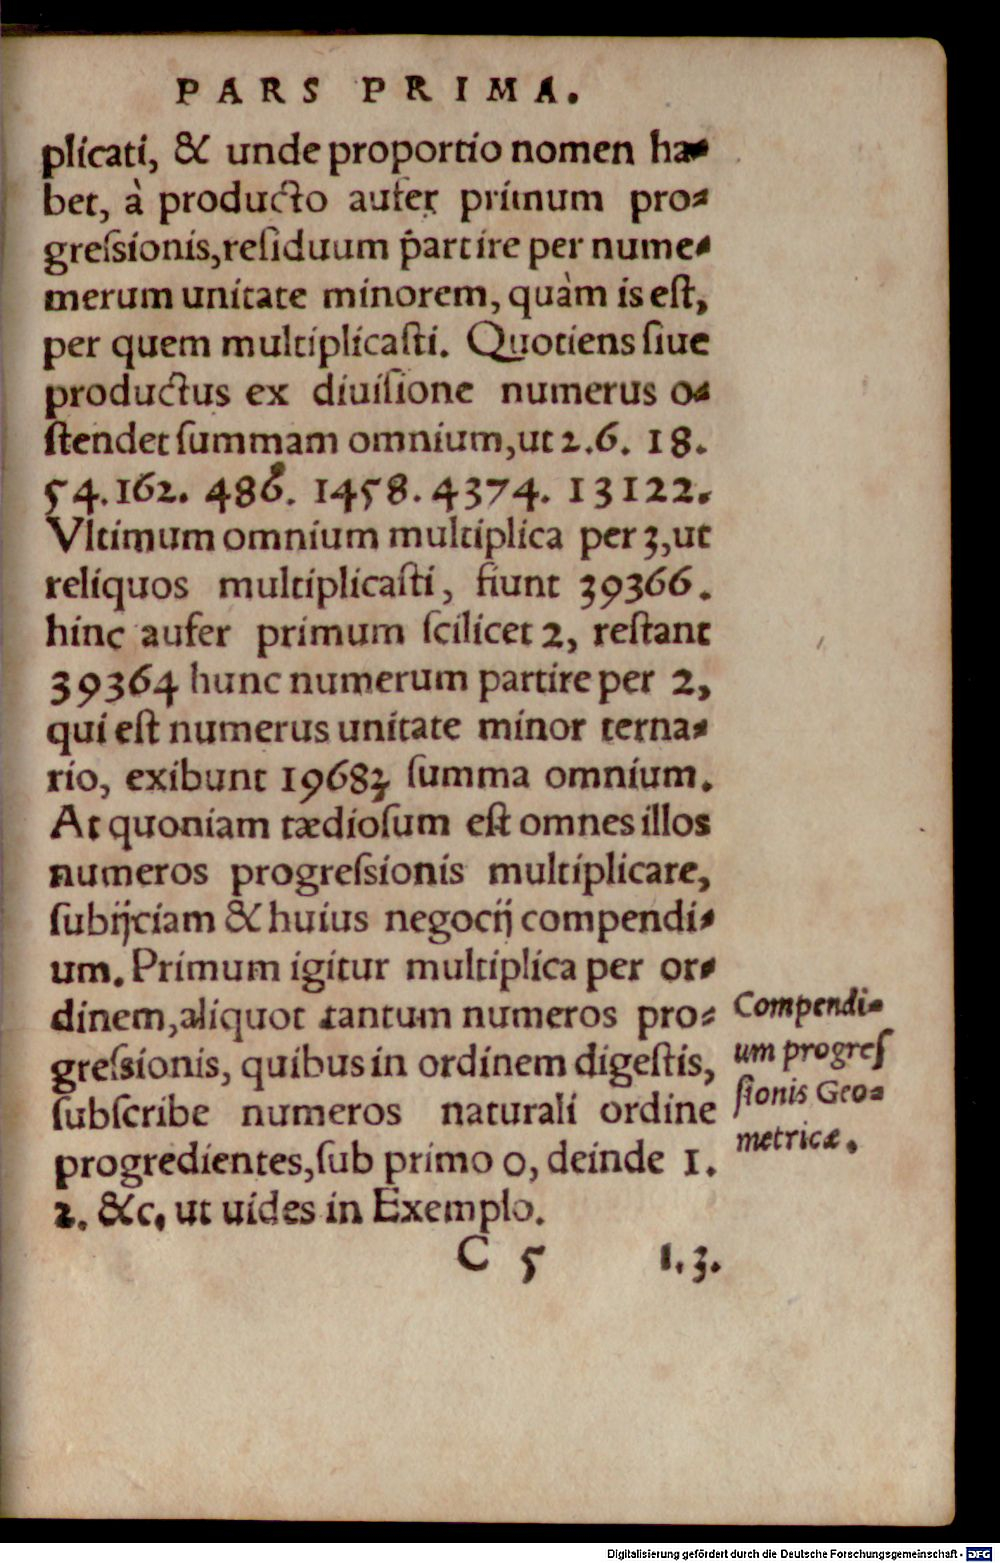 PARS PRIMA.
plicati, & unde proportio nomen ha-
bet, à producto aufer primum pro-
greſsionis, reſiduum partire per nume-
merum unitate minorem, quàm is eſt,
per quem multiplicaſti. Quotiens ſiue
productus ex diuiſione numerus o-
ſtendet ſummam omnium, ut 2. 6. 18.
54. 162. 486. 1458. 4374. 13122.
Vltimum omnium multiplica per 3, ut
reliquos multiplicaſti, fiunt 39366.
hinc aufer primum ſcilicet 2, reſtant
39364 hunc numerum partire per 2,
qui eſt numerus unitate minor terna-
rio, exibunt 19683 ſumma omnium.
At quoniam tædioſum eſt omnes illos
numeros progreſsionis multiplicare,
ſubijciam & huius negocij compendi-
um. Primum igitur multiplica per or-
dinem, aliquot tantum numeros pro-
greſsionis, quibus in ordinem digeſtis,
ſubſcribe numeros naturali ordine
progredientes, ſub primo 0, deinde 1.
2. &c. ut uides in Exemplo.
Compendi-
um progreſ
ſionis Geo-
metricæ.
C 5 1. 3.
Digitalisierung gefördert durch die Deutsche Forschungsgemeinschaft - DFG